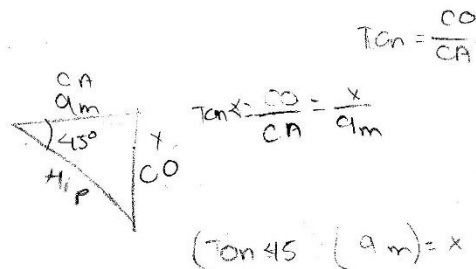 Tan = CO/CA
CA
9m
45°
x
CO
Hip
Tan α = CO/CA = x/9m
(Tan 45 (9m) = x